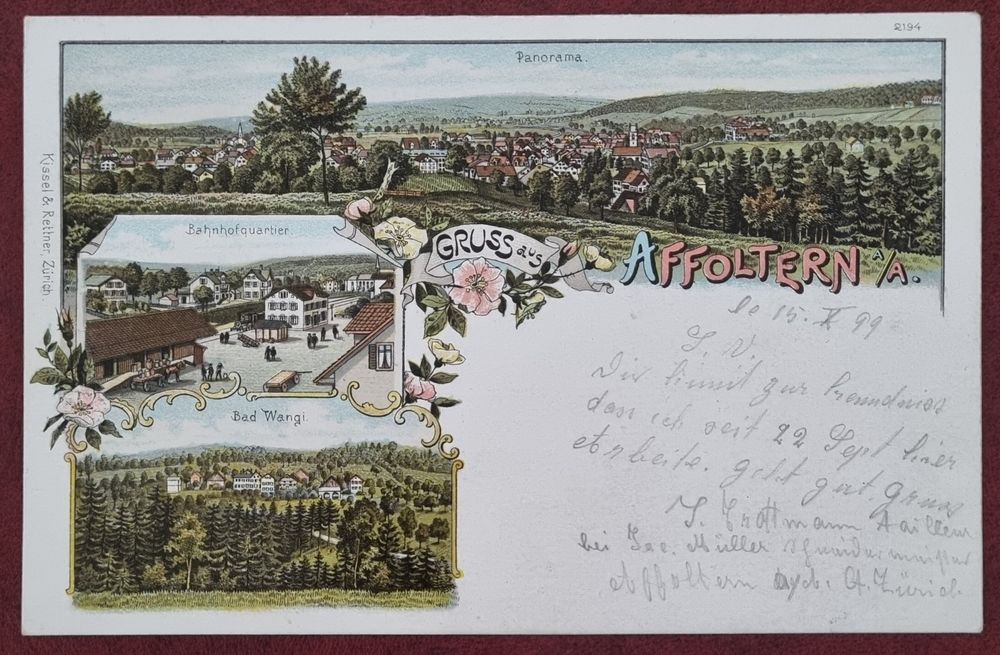 2194
Panorama.
Kissel & Rettner, Zürich.
Bahnhofquartier.
GRUSS aus
AFFOLTERN A/A.
Bad Wangi.
15. X 99
Dir himit zur kenndniss
dass ich seit 22 Sept hier
arbeite. geht gut. Gruss
J. Trottmann Tailleur
bei Jac. Müller schneidermeister
affoltern Zürich.